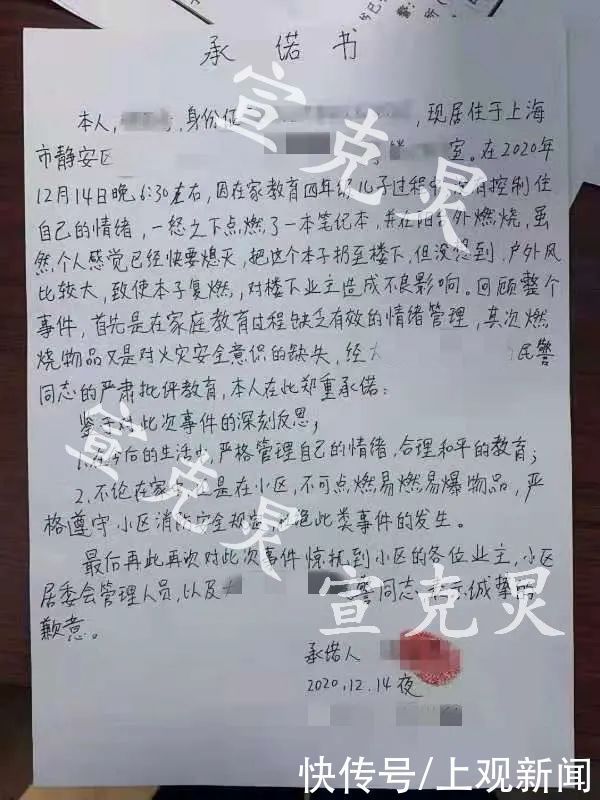 承诺书
本人,身份证,现居住于上海
市静安区室。在2020年
12月14日晚6:30左右,因在家教育四年级儿子过程中没有控制住
自己的情绪,一怒之下点燃了一本笔记本,并在阳台外燃烧,虽
然个人感觉已经快要熄灭,把这个本子扔至楼下,但没想到,户外风
比较大,致使本子复燃,对楼下业主造成不良影响。回顾整个
事件,首先是在家庭教育过程缺乏有效的情绪管理,其次燃
烧物品又是对火灾安全意识的缺失,经大民警
同志的严肃批评教育,本人在此郑重承诺:
鉴于对此次事件的深刻反思;
1.在今后的生活中,严格管理自己的情绪,合理和平的教育;
2.不论在家还是在小区,不可点燃易燃易爆物品,严
格遵守小区消防安全规范,杜绝此类事件的发生。
最后再此再次对此次事件惊扰到小区的各位业主,小区
居委会管理人员,以及大警同志表示诚挚的
歉意。
承诺人
2020.12.14夜
宣克灵
宣克灵
宣克灵
宣克灵
快传号/上观新闻